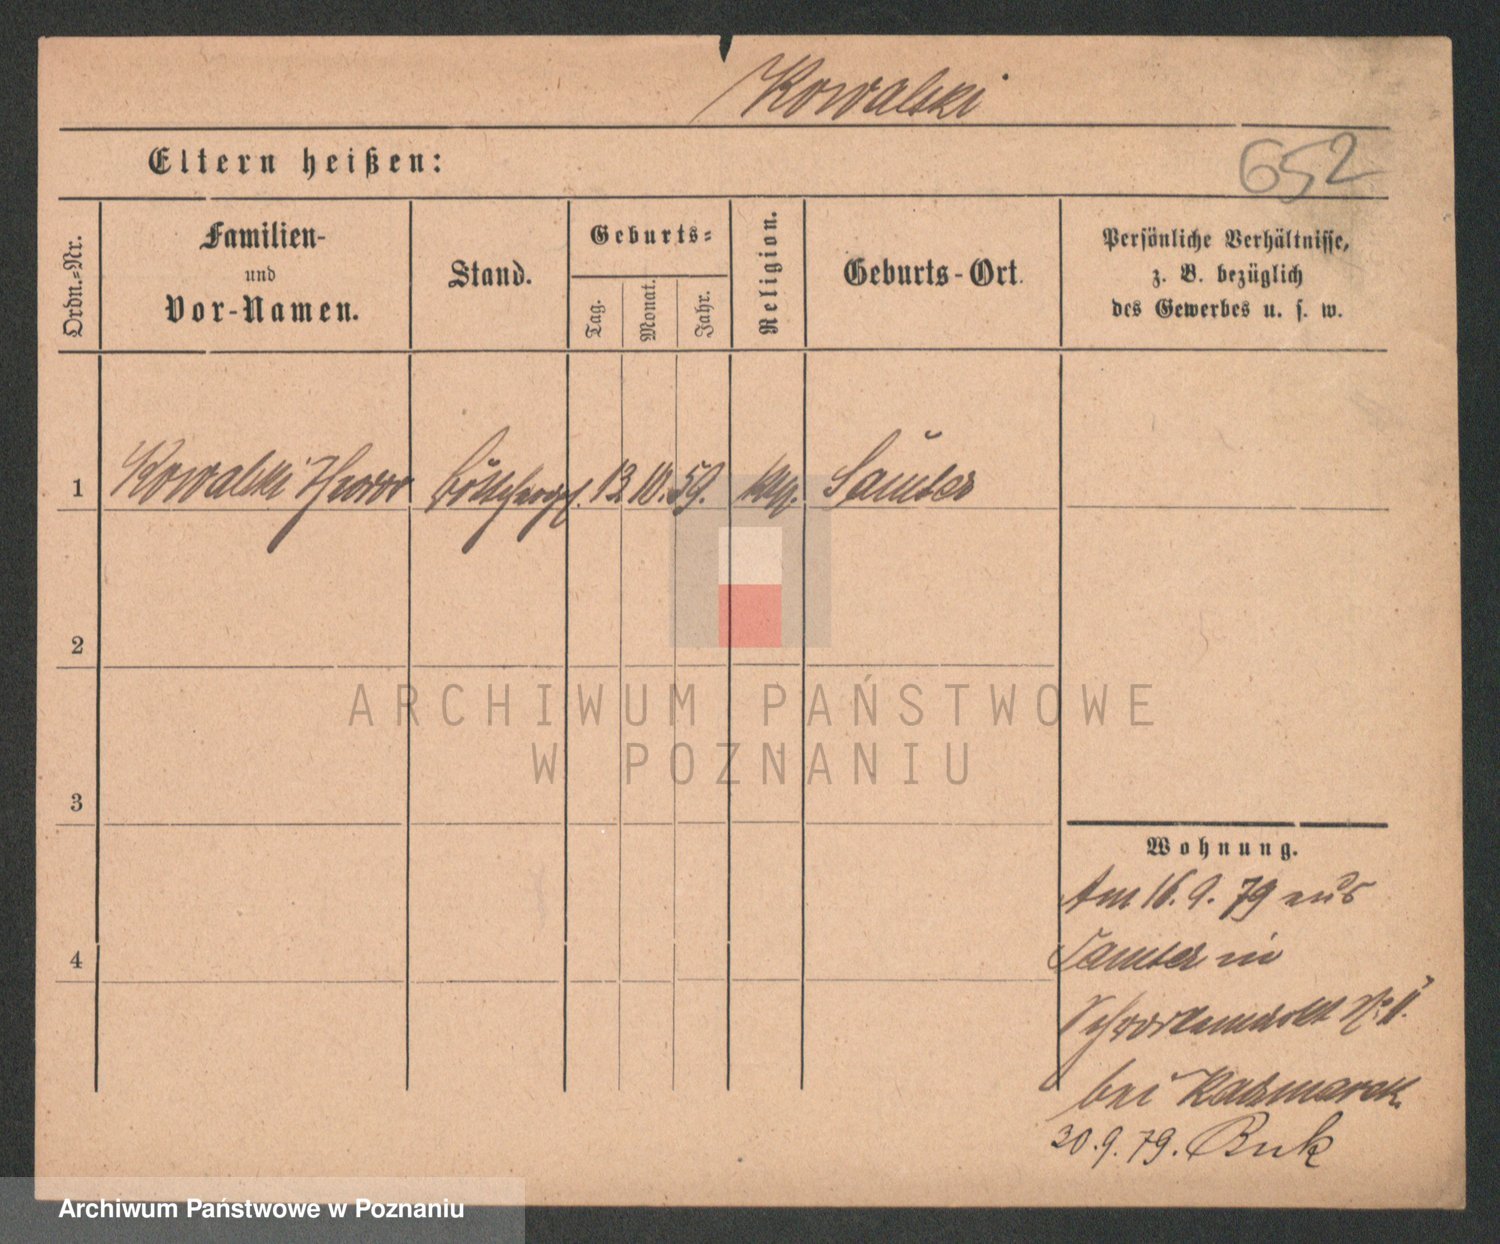 Kowalski
652
Eltern heißen:
Ordn.=Nr.
Familien-
und
Vor-Namen.
Stand.
Geburts=
Tag.
Monat.
Jahr.
Religion.
Geburts-Ort.
Persönliche Verhältnisse,
z. B. bezüglich
des Gewerbes u. s. w.
1 Kowalski 13 10. 59. Samter
2
3
4
Wohnung.
Am 16. 9. 79 aus
Samter in
bei
30.9.79. Buk
ARCHIWUM PAŃSTWOWE
W POZNANIU
Archiwum Państwowe w Poznaniu